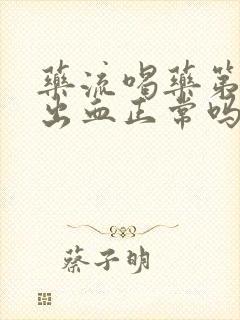 藥流喝藥第
出血正常嗎
蔡子明